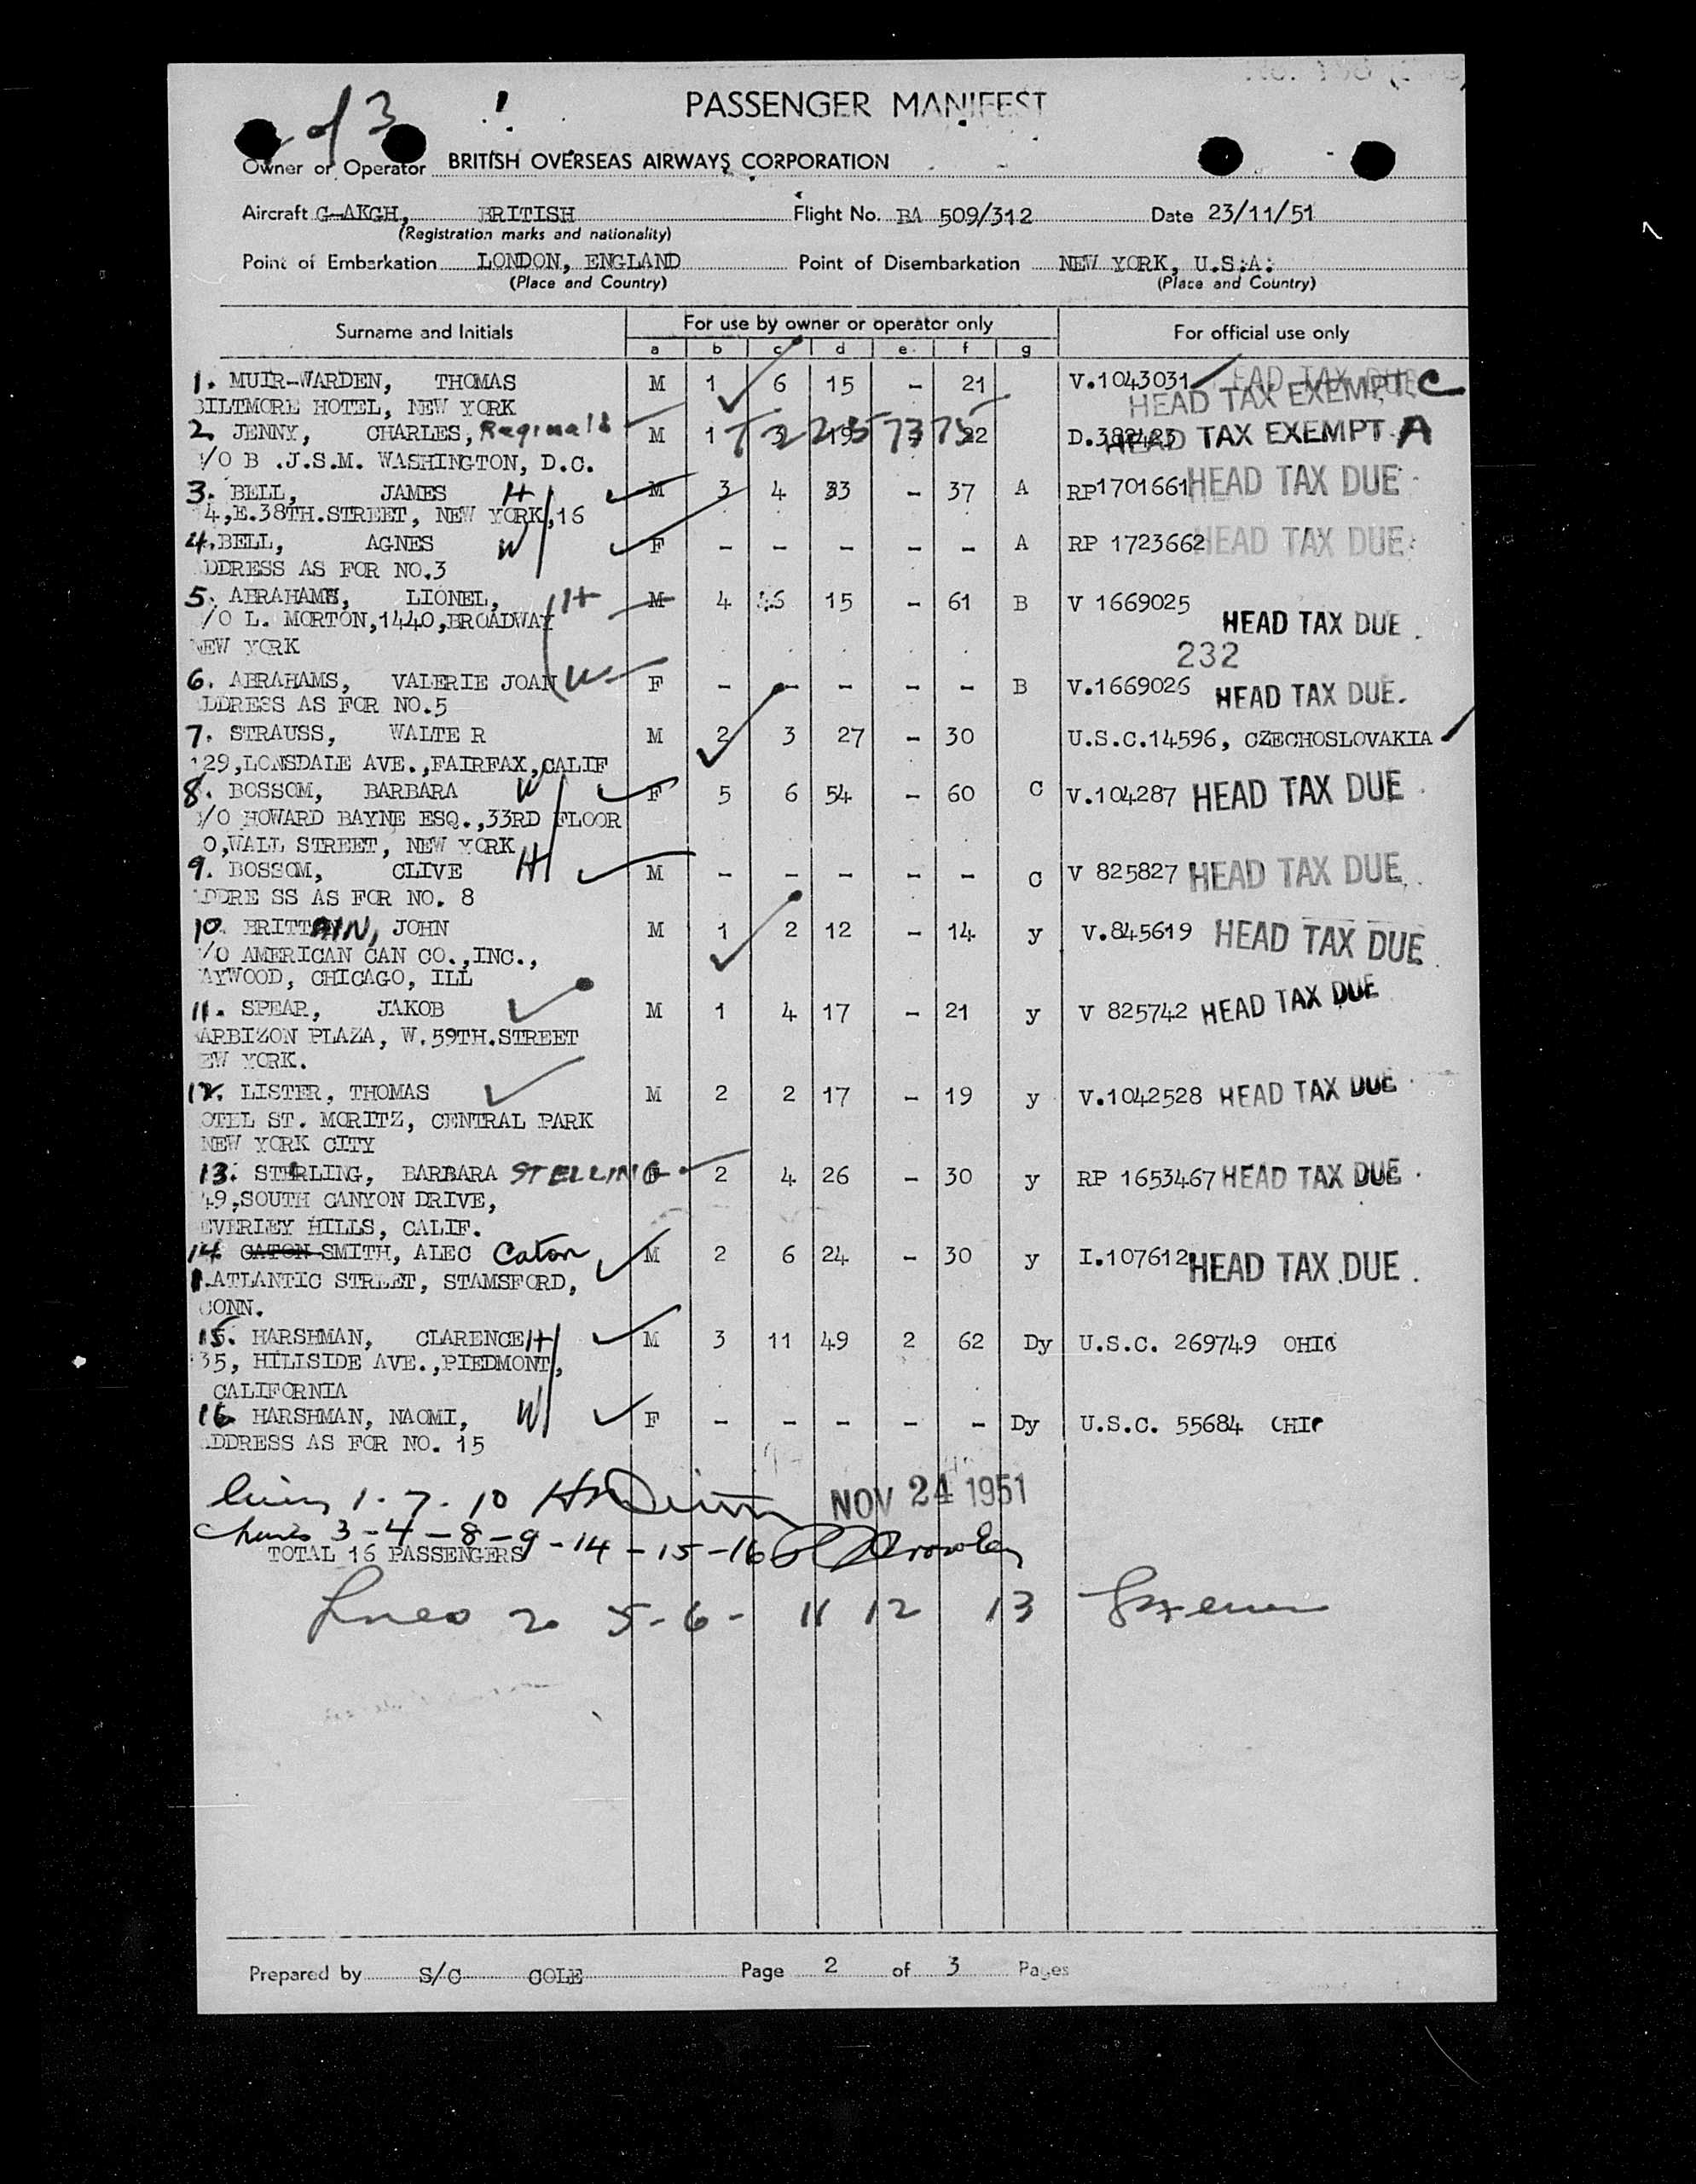 2 of 3
PASSENGER MANIFEST
Owner or Operator BRITISH OVERSEAS AIRWAYS CORPORATION
Aircraft G-AKGH, BRITISH Flight No. BA 509/312 Date 23/11/51
(Registration marks and nationality)
Point of Embarkation LONDON, ENGLAND Point of Disembarkation NEW YORK, U.S.A.
(Place and Country) (Place and Country)
Surname and Initials For use by owner or operator only For official use only
a b c d e f g
1. MUIR-WARDEN, THOMAS M 1 6 15 - 21 V.1043031 HEAD TAX DUE C
BILTMORE HOTEL, NEW YORK HEAD TAX EXEMPT
2. JENNY, CHARLES, Reginald M 1 3 19 - 22 D.382423 HEAD TAX EXEMPT A
/O B .J.S.M. WASHINGTON, D.C.
3. BELL, JAMES H M 3 4 33 - 37 A RP1701661 HEAD TAX DUE
4,E.38TH.STREET, NEW YORK,16
4. BELL, AGNES W F - - - - - A RP 1723662 HEAD TAX DUE
DDRESS AS FOR NO.3
5. ABRAHAMS, LIONEL, H M 4 46 15 - 61 B V 1669025
/O L. MORTON,1440,BROADWAY HEAD TAX DUE
NEW YORK 232
6. ABRAHAMS, VALERIE JOAN W F - - - - - B V.1669026 HEAD TAX DUE.
DDRESS AS FOR NO.5
7. STRAUSS, WALTE R M 2 3 27 - 30 U.S.C.14596, CZECHOSLOVAKIA
129,LONSDALE AVE.,FAIRFAX,CALIF
8. BOSSOM, BARBARA W F 5 6 54 - 60 C V.104287 HEAD TAX DUE
/O HOWARD BAYNE ESQ.,33RD FLOOR
0,WALL STREET, NEW YORK
9. BOSSOM, CLIVE H M - - - - - C V 825827 HEAD TAX DUE
DDRE SS AS FOR NO. 8
10. BRITTAIN, JOHN M 1 2 12 - 14 y V.845619 HEAD TAX DUE
/O AMERICAN CAN CO.,INC.,
AYWOOD, CHICAGO, ILL
11. SPEAR, JAKOB M 1 4 17 - 21 y V 825742 HEAD TAX DUE
ARBIZON PLAZA, W.59TH.STREET
EW YORK.
12. LISTER, THOMAS M 2 2 17 - 19 y V.1042528 HEAD TAX DUE
OTEL ST. MORITZ, CENTRAL PARK
NEW YORK CITY
13. STERLING, BARBARA STELLING F 2 4 26 - 30 y RP 1653467 HEAD TAX DUE
49,SOUTH CANYON DRIVE,
EVERLEY HILLS, CALIF.
14. CATON SMITH, ALEC Caton M 2 6 24 - 30 y I.107612 HEAD TAX DUE
1.ATLANTIC STREET, STAMSFORD,
CONN.
15. HARSHMAN, CLARENCE H M 3 11 49 2 62 Dy U.S.C. 269749 OHIO
35, HILLSIDE AVE.,PIEDMONT,
CALIFORNIA
16. HARSHMAN, NAOMI, W F - - - - - Dy U.S.C. 55684 OHIO
DDRESS AS FOR NO. 15
1. 7. 10 NOV 24 1951
3-4-8-9-14-15-16
TOTAL 16 PASSENGERS
2 5-6- 11 12 13
Prepared by S/C COLE Page 2 of 3 Pages